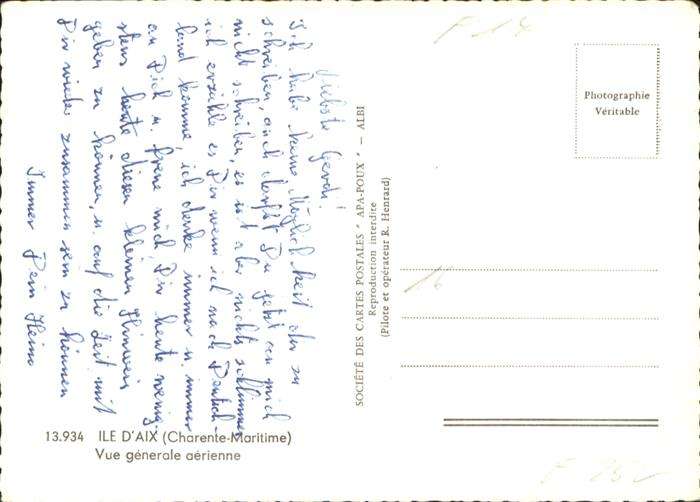 Liebste Gerdi!
Ich habe keine Möglichkeit dir zu
schreiben, auch darfst Du jetzt an mich
nicht schreiben, es ist aber nichts schlimmes
ich erzähle es Dir wenn ich nach Deutsch-
land komme, ich denke immer u. immer
an Dich u. freue mich Dir heute wenig-
stens heute diesen kleinen Hinweis
geben zu können, u. auf die Zeit mit
Dir wieder zusammen sein zu können
Immer Dein Heino
13.934 ILE D'AIX (Charente-Maritime)
Vue génerale aérienne
SOCIÉTÉ DES CARTES POSTALES " APA-POUX " — ALBI
Reproduction interdite
(Pilote et opérateur R. Henrard)
Photographie
Véritable
16